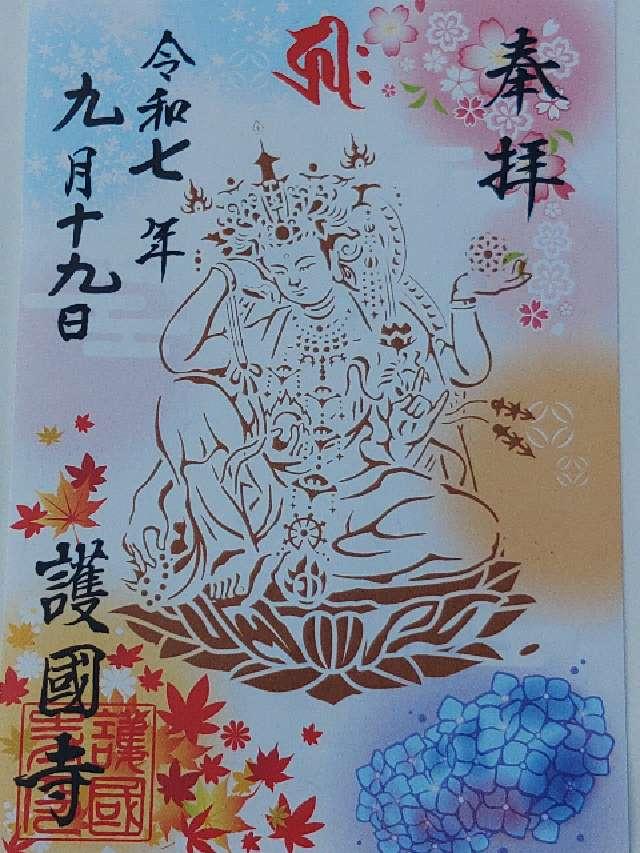 奉拝
令和七年
九月十九日
護國寺